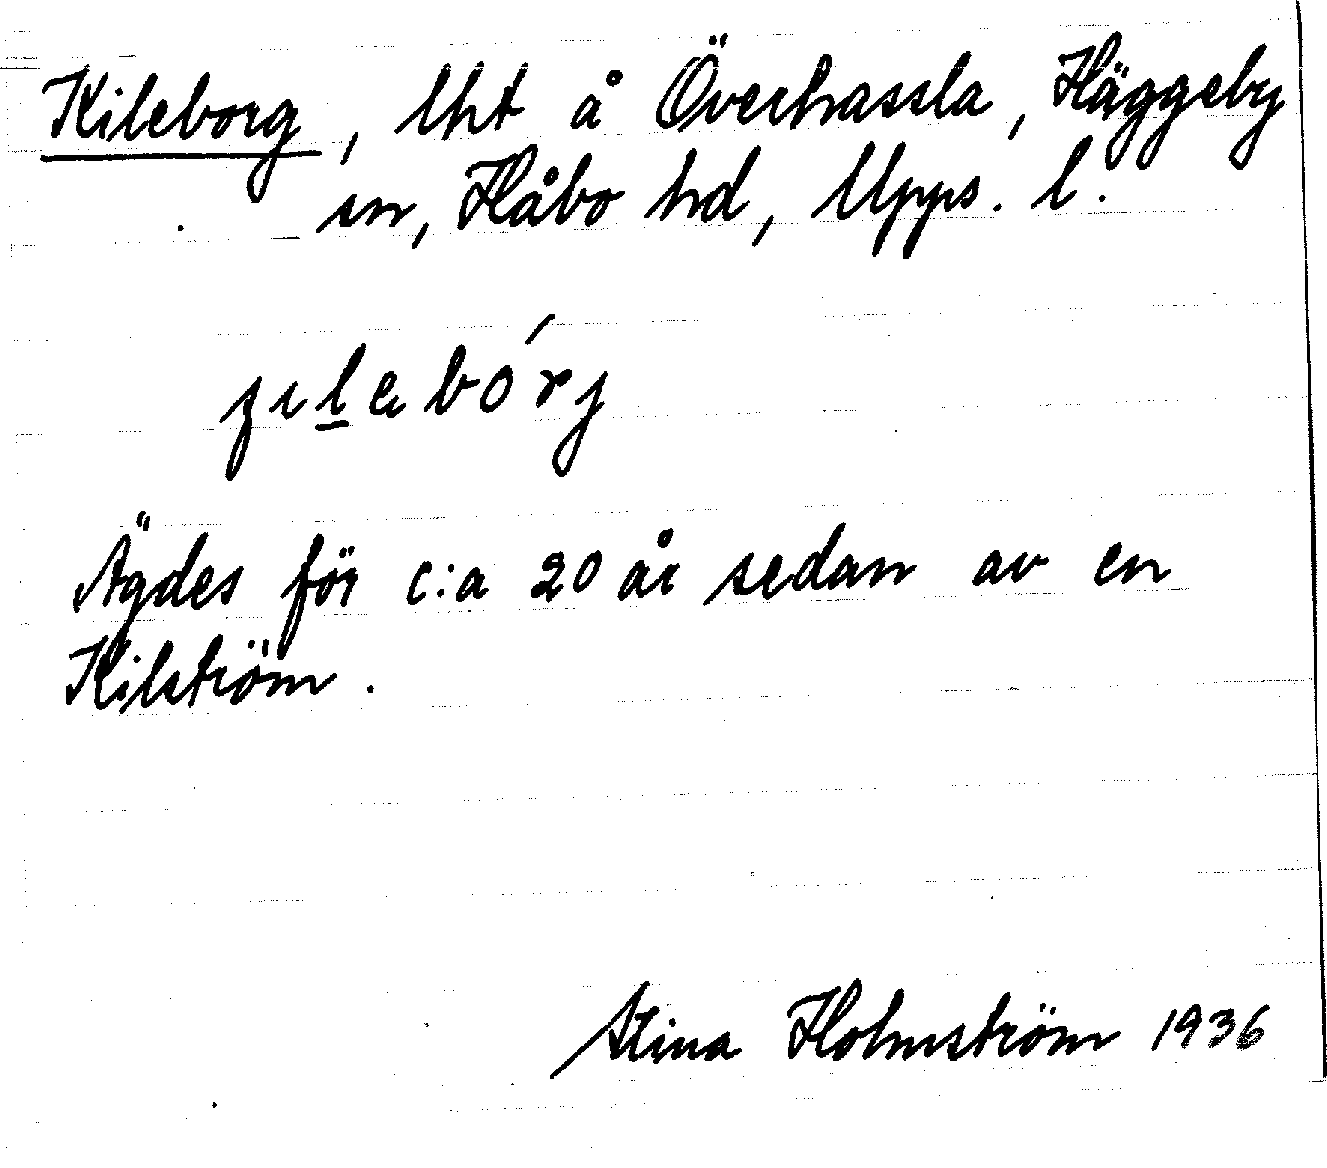 Kileborg, lht å Överhassla, Häggeby
sn, Håbo hd, Upps. l.
ɟɩlebórj
Ägdes för c:a 20 år sedan av en
Kilström.
Stina Holmström 1936